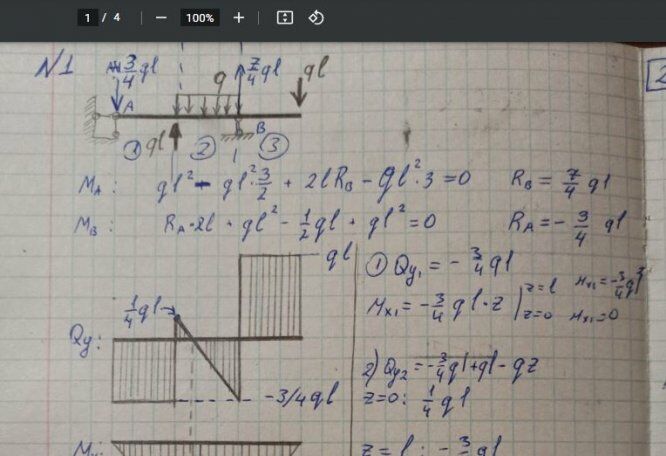 1 / 4 100%
N1 3/4 ql 7/4 ql ql
q
A
B
① ql ② ③
M_A: ql² - ql²·3/2 + 2lR_B - ql²·3 = 0 R_B = 7/4 ql
M_B: R_A·2l + ql² - 1/2 ql + ql² = 0 R_A = - 3/4 ql
ql
① Qy₁ = - 3/4 ql
1/4 ql
Mx₁ = - 3/4 ql·z | z=l Mx₁ = - 3/4 ql²
z=0 Mx₁ = 0
Qy:
2) Qy₂ = - 3/4 ql + ql - qz
-3/4 ql
z=0: 1/4 ql
z = l: - 3/4 ql
2